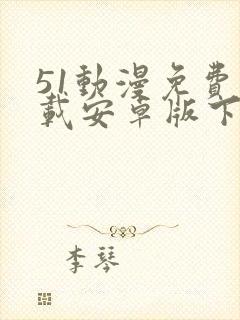 51動漫免費
載安卓版下
李琴